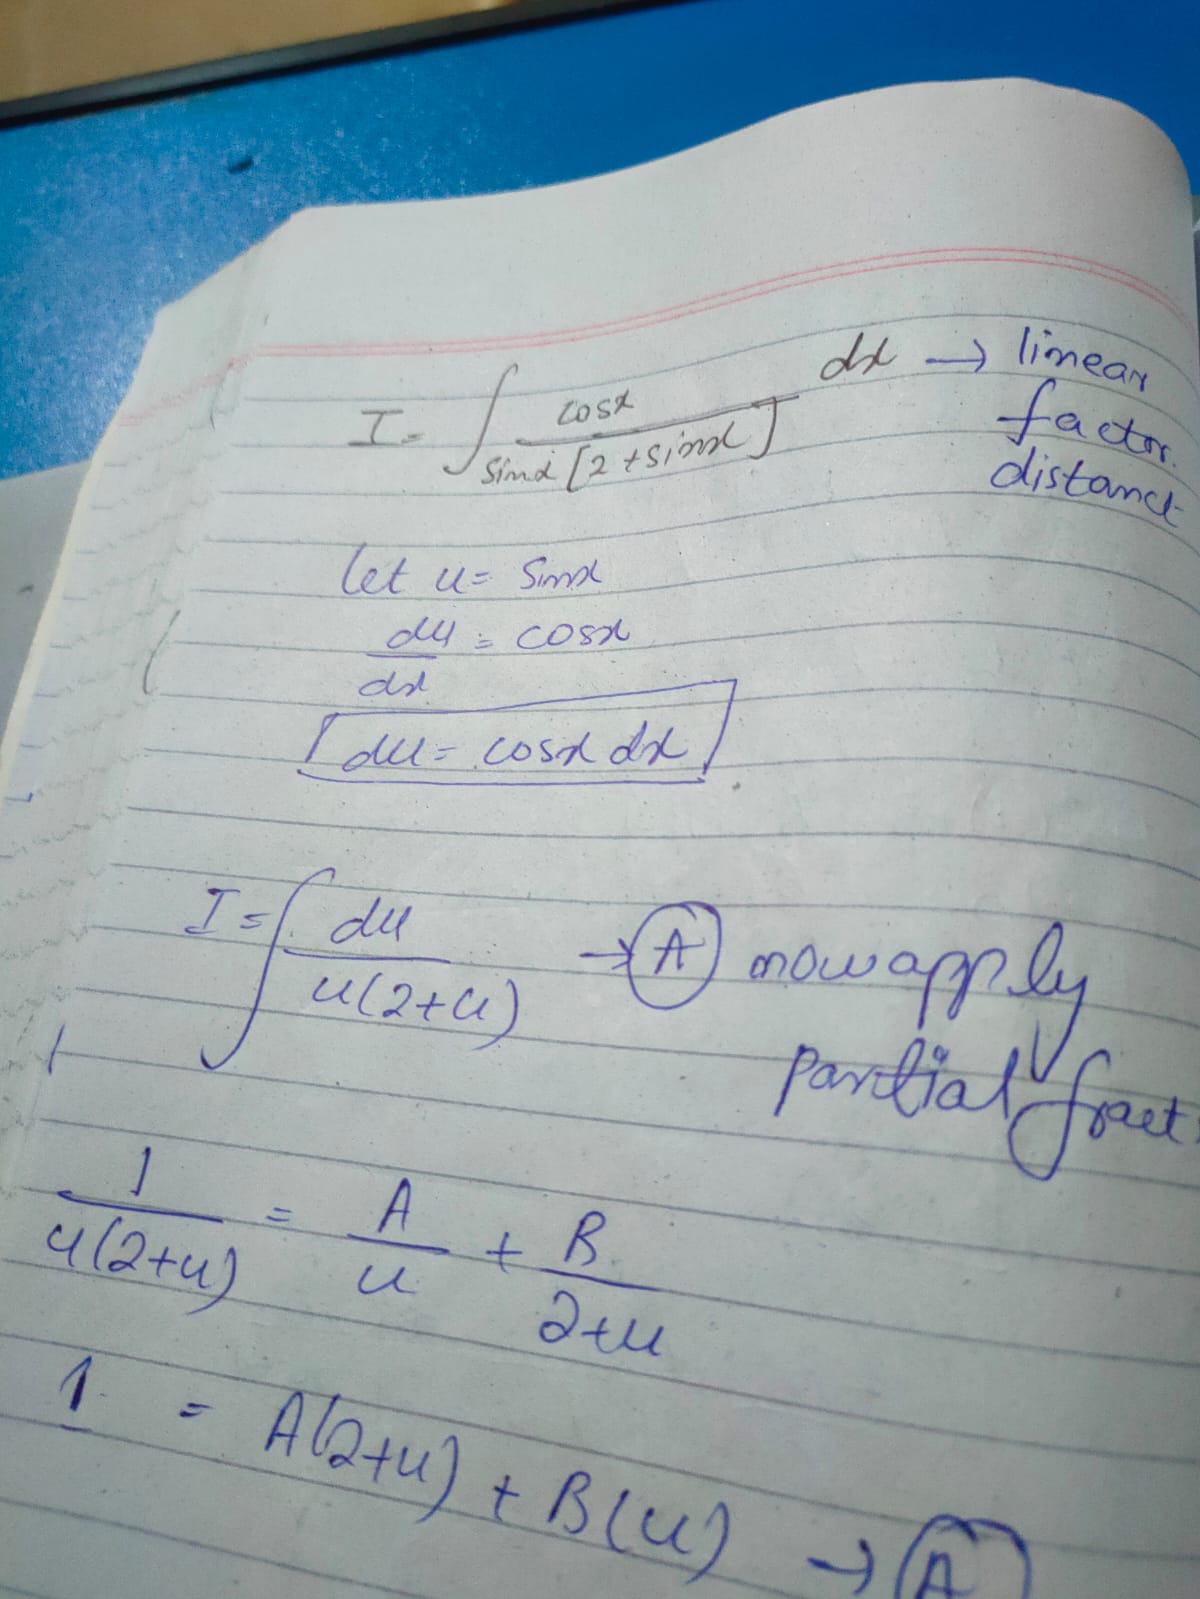 I = ∫ cosx / sinx [2 + sinx] dx → linear
factor
distanct
let u = sinx
du/dx = cosx
du = cosx dx
I = ∫ du / u(2+u) → (A) now apply
partial fract
1 / u(2+u) = A / u + B / 2+u
1 = A(2+u) + B(u) → (A)